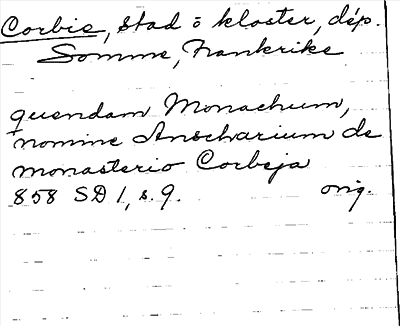 Corbie, stad o kloster, dép.
Somme, Frankrike
quendam Monachum,
nomine Anscharium de
monasterio Corbeja
858 SD 1, s. 9. orig.